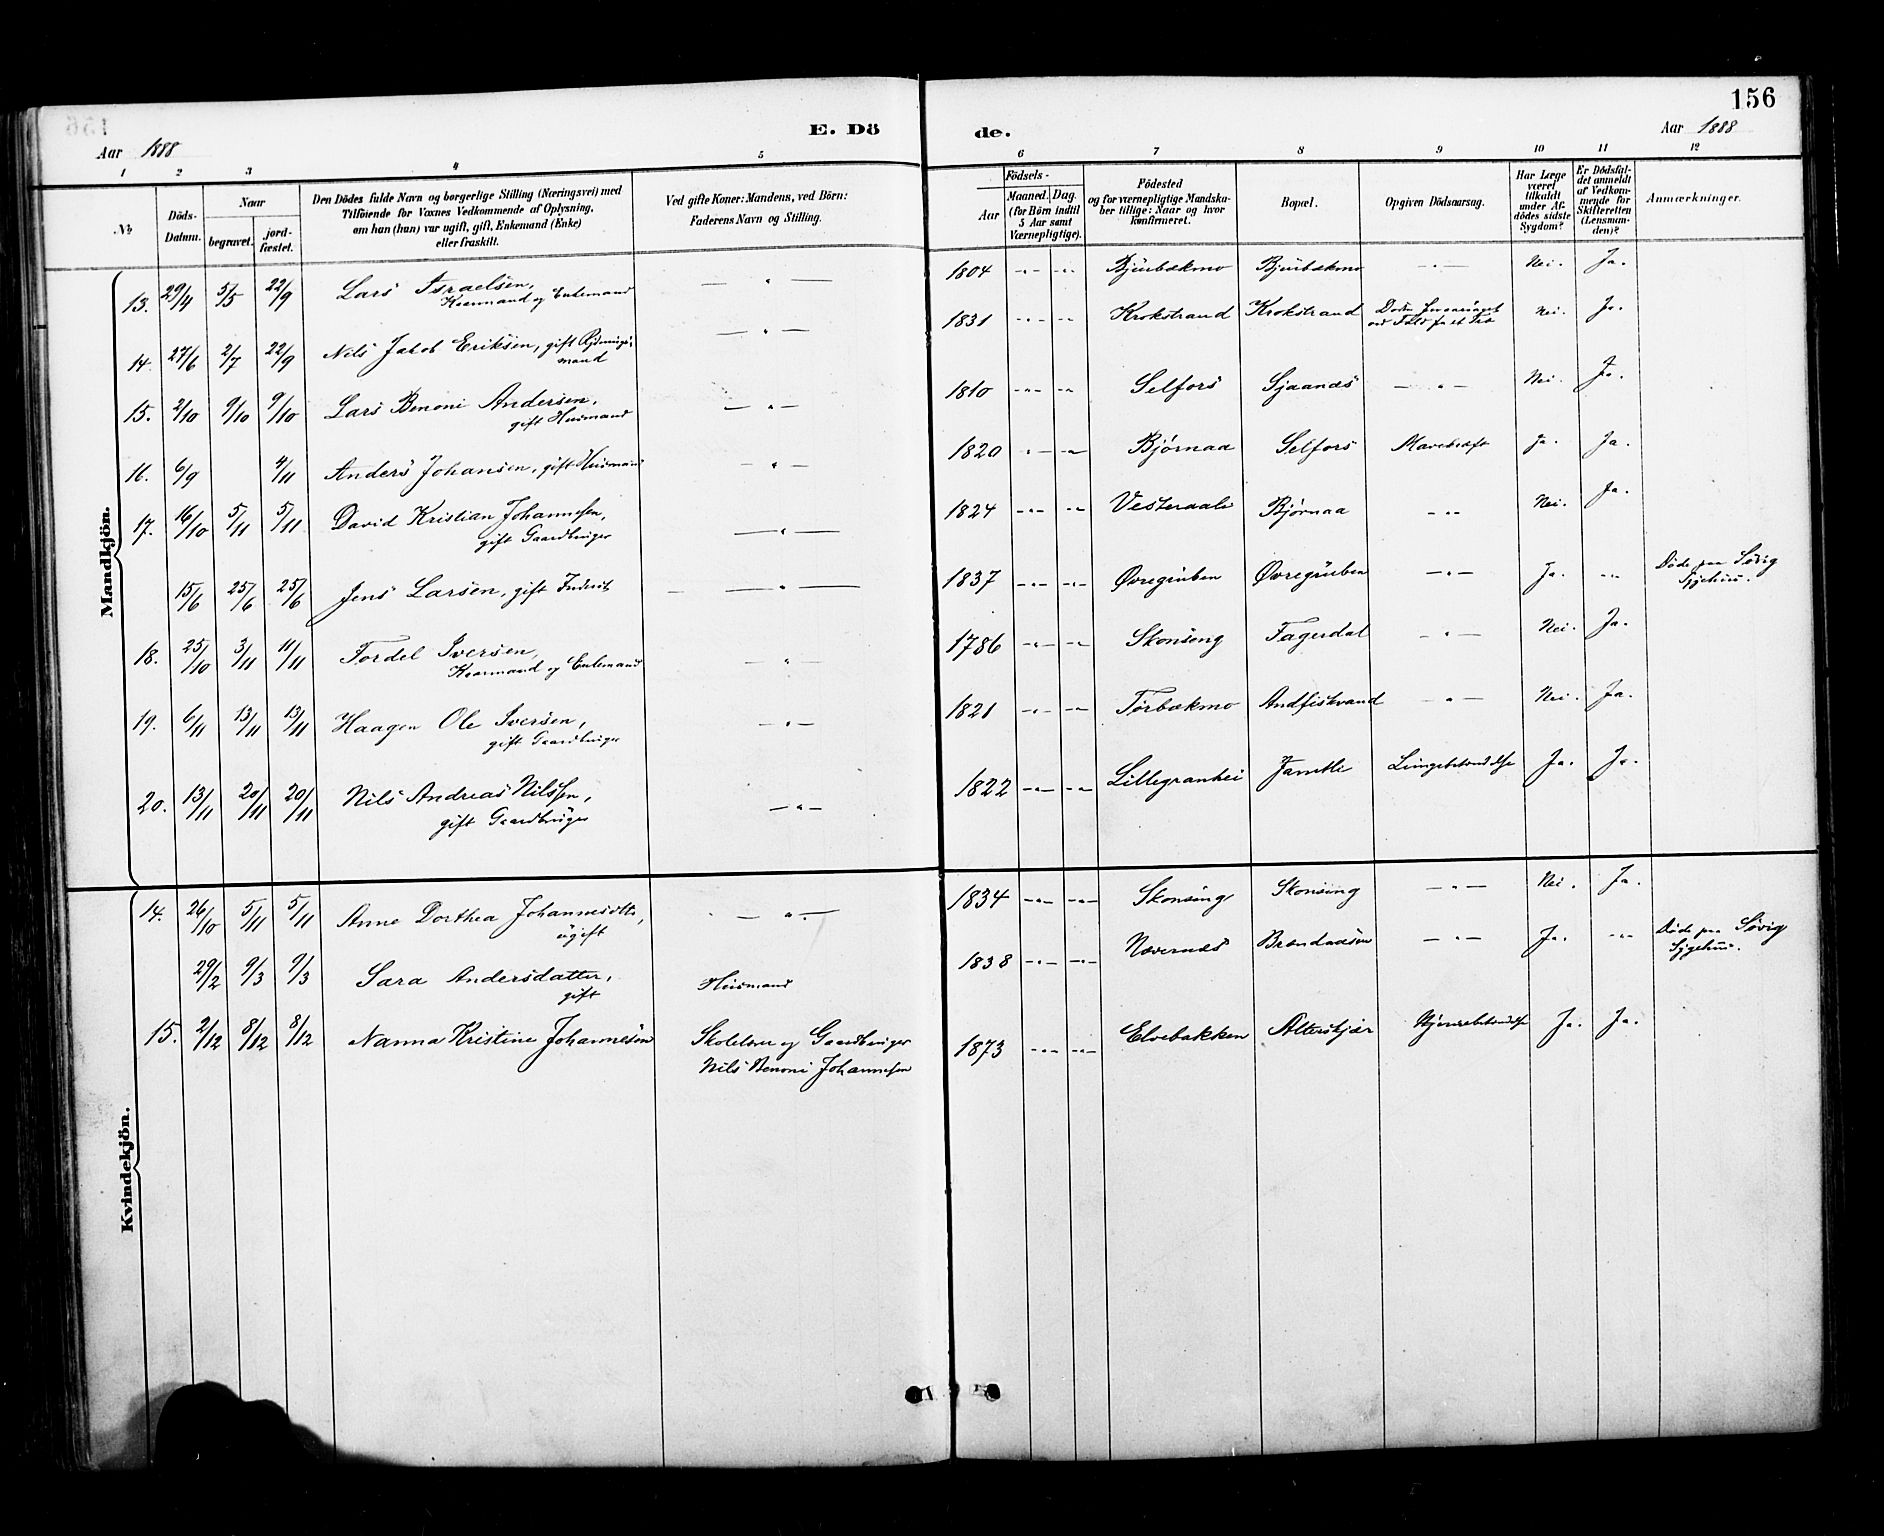 156
E. Dö de.
Aar 1888
Aar 1888
1 2 3 4 5 6 7 8 9 10 11 12
№
Döds-Datum.
Naar
begravet.
jord-fæstet.
Den Dödes fulde Navn og borgerlige Stilling (Næringsvei) med
Tilföiende for Voxnes Vedkommende af Oplysning,
om han (hun) var ugift, gift, Enkemand (Enke)
eller fraskilt.
Ved gifte Koner: Mandens, ved Börn:
Faderens Navn og Stilling.
Födsels-
Aar
Maaned.
Dag.
(for Börn indtil
5 Aar samt
Værnepligtige).
Födested
og for værnepligtige Mandska-
ber tillige: Naar og hvor
konfirmeret.
Bopæl.
Opgiven Dödsaarsag.
Har Læge
været
tilkaldt
under Af-
dödes sidste
Sygdom?
Er Dödsfal-
det anmeldt
af Vedkom-
mende for
Skifteretten
(Lensman-
den)?
Anmærkninger.
Mandkjön.
13. 29/4 5/5 22/9 Lars Israelsen, — " — 1804 -"- -"- Bjurbækmo Bjurbækmo -"- Nei. Ja.
Kaarmand og Enkemand
14. 27/6 2/7 22/9 Nils Jakob Eriksen, gift Rydnings- — " — 1831 -"- -"- Krokstrand Krokstrand Nei. Ja.
mand
15. 2/10 9/10 9/10 Lars Benoni Andersen, — " — 1810 -"- -"- Selfors Sjaanæs — " — Nei. Ja.
gift Husmand
16. 6/9 4/11 Anders Johansen, gift Husmand — " — 1820 -"- -"- Bjørnaa Selfors Mavekræft Ja. Ja.
17. 16/10 5/11 5/11 David Kristian Johannesen, — " — 1824 -"- -"- Vesteraali Bjørnaa -"- Nei. Ja.
gift Gaardbruger
15/6 25/6 25/6 Jens Larsen, gift Inderst — " — 1837 -"- -"- Øvregruben Øvregruben -"- Ja. -"- Døde paa Søvig
Sygehus.
18. 25/10 3/11 11/11 Tordel Iversen, — " — 1786 -"- -"- Skonseng Fagerdal -"- Nei. Ja.
Kaarmand og Enkemand
19. 6/11 13/11 13/11 Haagen Ole Iversen, — " — 1821 -"- -"- Tørbækmo Andfiskvand -"- Nei. Ja.
gift Gaardbruger
20. 13/11 20/11 20/11 Nils Andreas Nilssen, — " — 1822 -"- -"- Lillegranhei Jamtli Lungebetændelse Ja. Ja.
gift Gaardbruger
Kvindekjön.
14. 26/10 5/11 5/11 Anne Dorthea Johannesdtr, — " — 1834 -"- -"- Skonseng Skonseng — " — Nei. Ja.
ugift
29/2 9/3 9/3 Sara Andersdatter, Husmand 1838 -"- -"- Nævernæs Brændaasen — " — Ja. -"- Døde paa Søvig
gift Sygehus.
15. 2/12 8/12 8/12 Nanna Kristine Johannesen Skolelærer og Gaardbruger 1873 -"- -"- Elvebakken Alterskjær Hjernebetændelse Ja. Ja.
Nils Benoni Johannesen